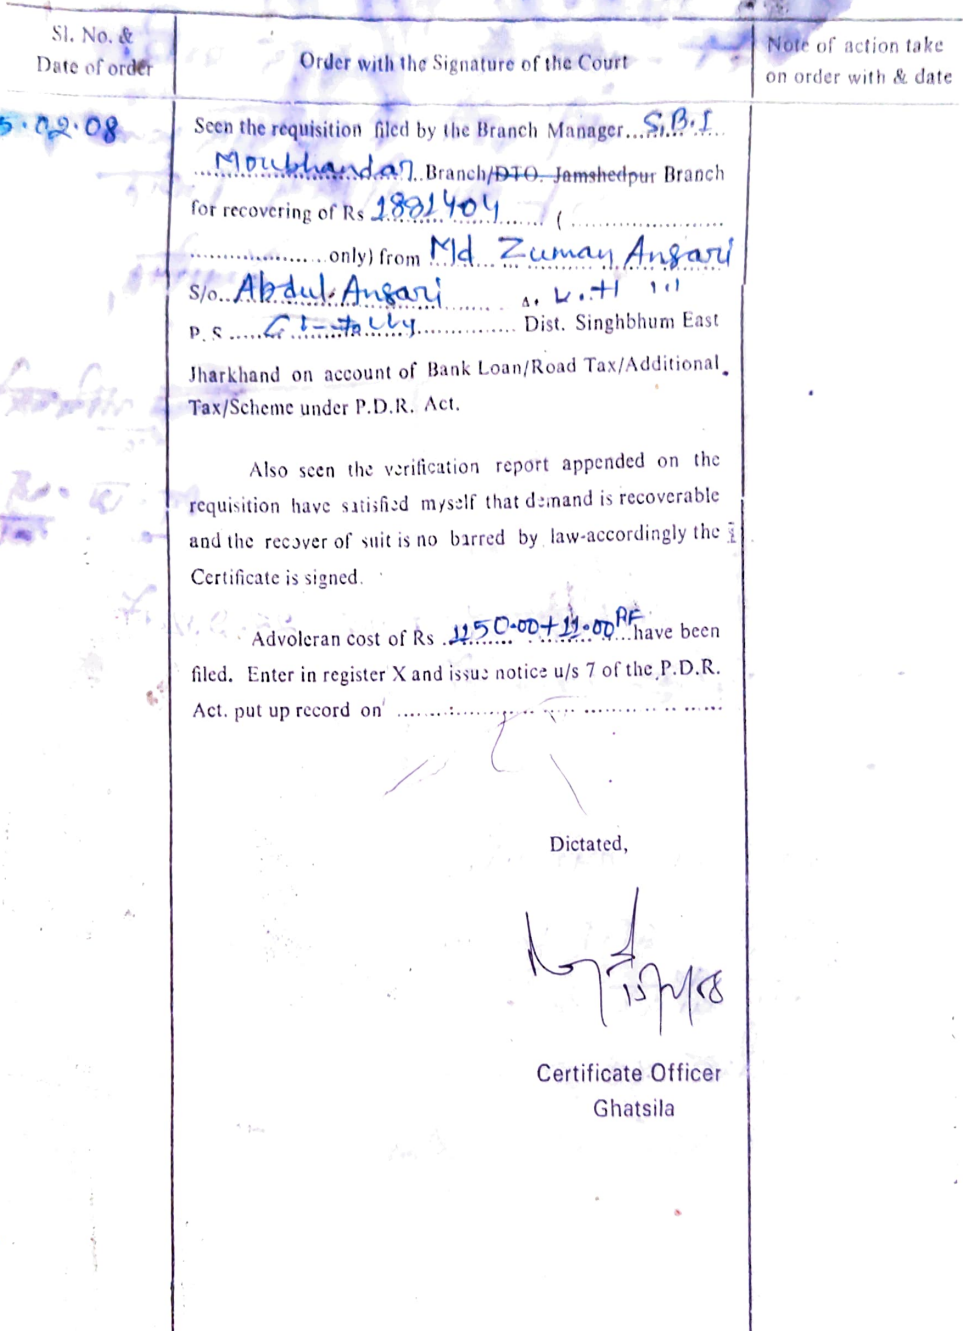 Sl. No. &
Date of order
Order with the Signature of the Court
Note of action take
on order with & date
5.02.08
Seen the requisition filed by the Branch Manager...S.B.I
Moubhandar Branch/DTO. Jamshedpur Branch
for recovering of Rs 1881404 (
only) from Md Zuman Ansari
S/o. Abdul Ansari
P. S Dist. Singhbhum East
Jharkhand on account of Bank Loan/Road Tax/Additional
Tax/Scheme under P.D.R. Act.
Also seen the verification report appended on the
requisition have satisfied myself that demand is recoverable
and the recover of suit is no barred by law-accordingly the
Certificate is signed.
Advoleran cost of Rs 1150.00+11.00 PF have been
filed. Enter in register X and issue notice u/s 7 of the P.D.R.
Act. put up record on
Dictated,
Certificate Officer
Ghatsila